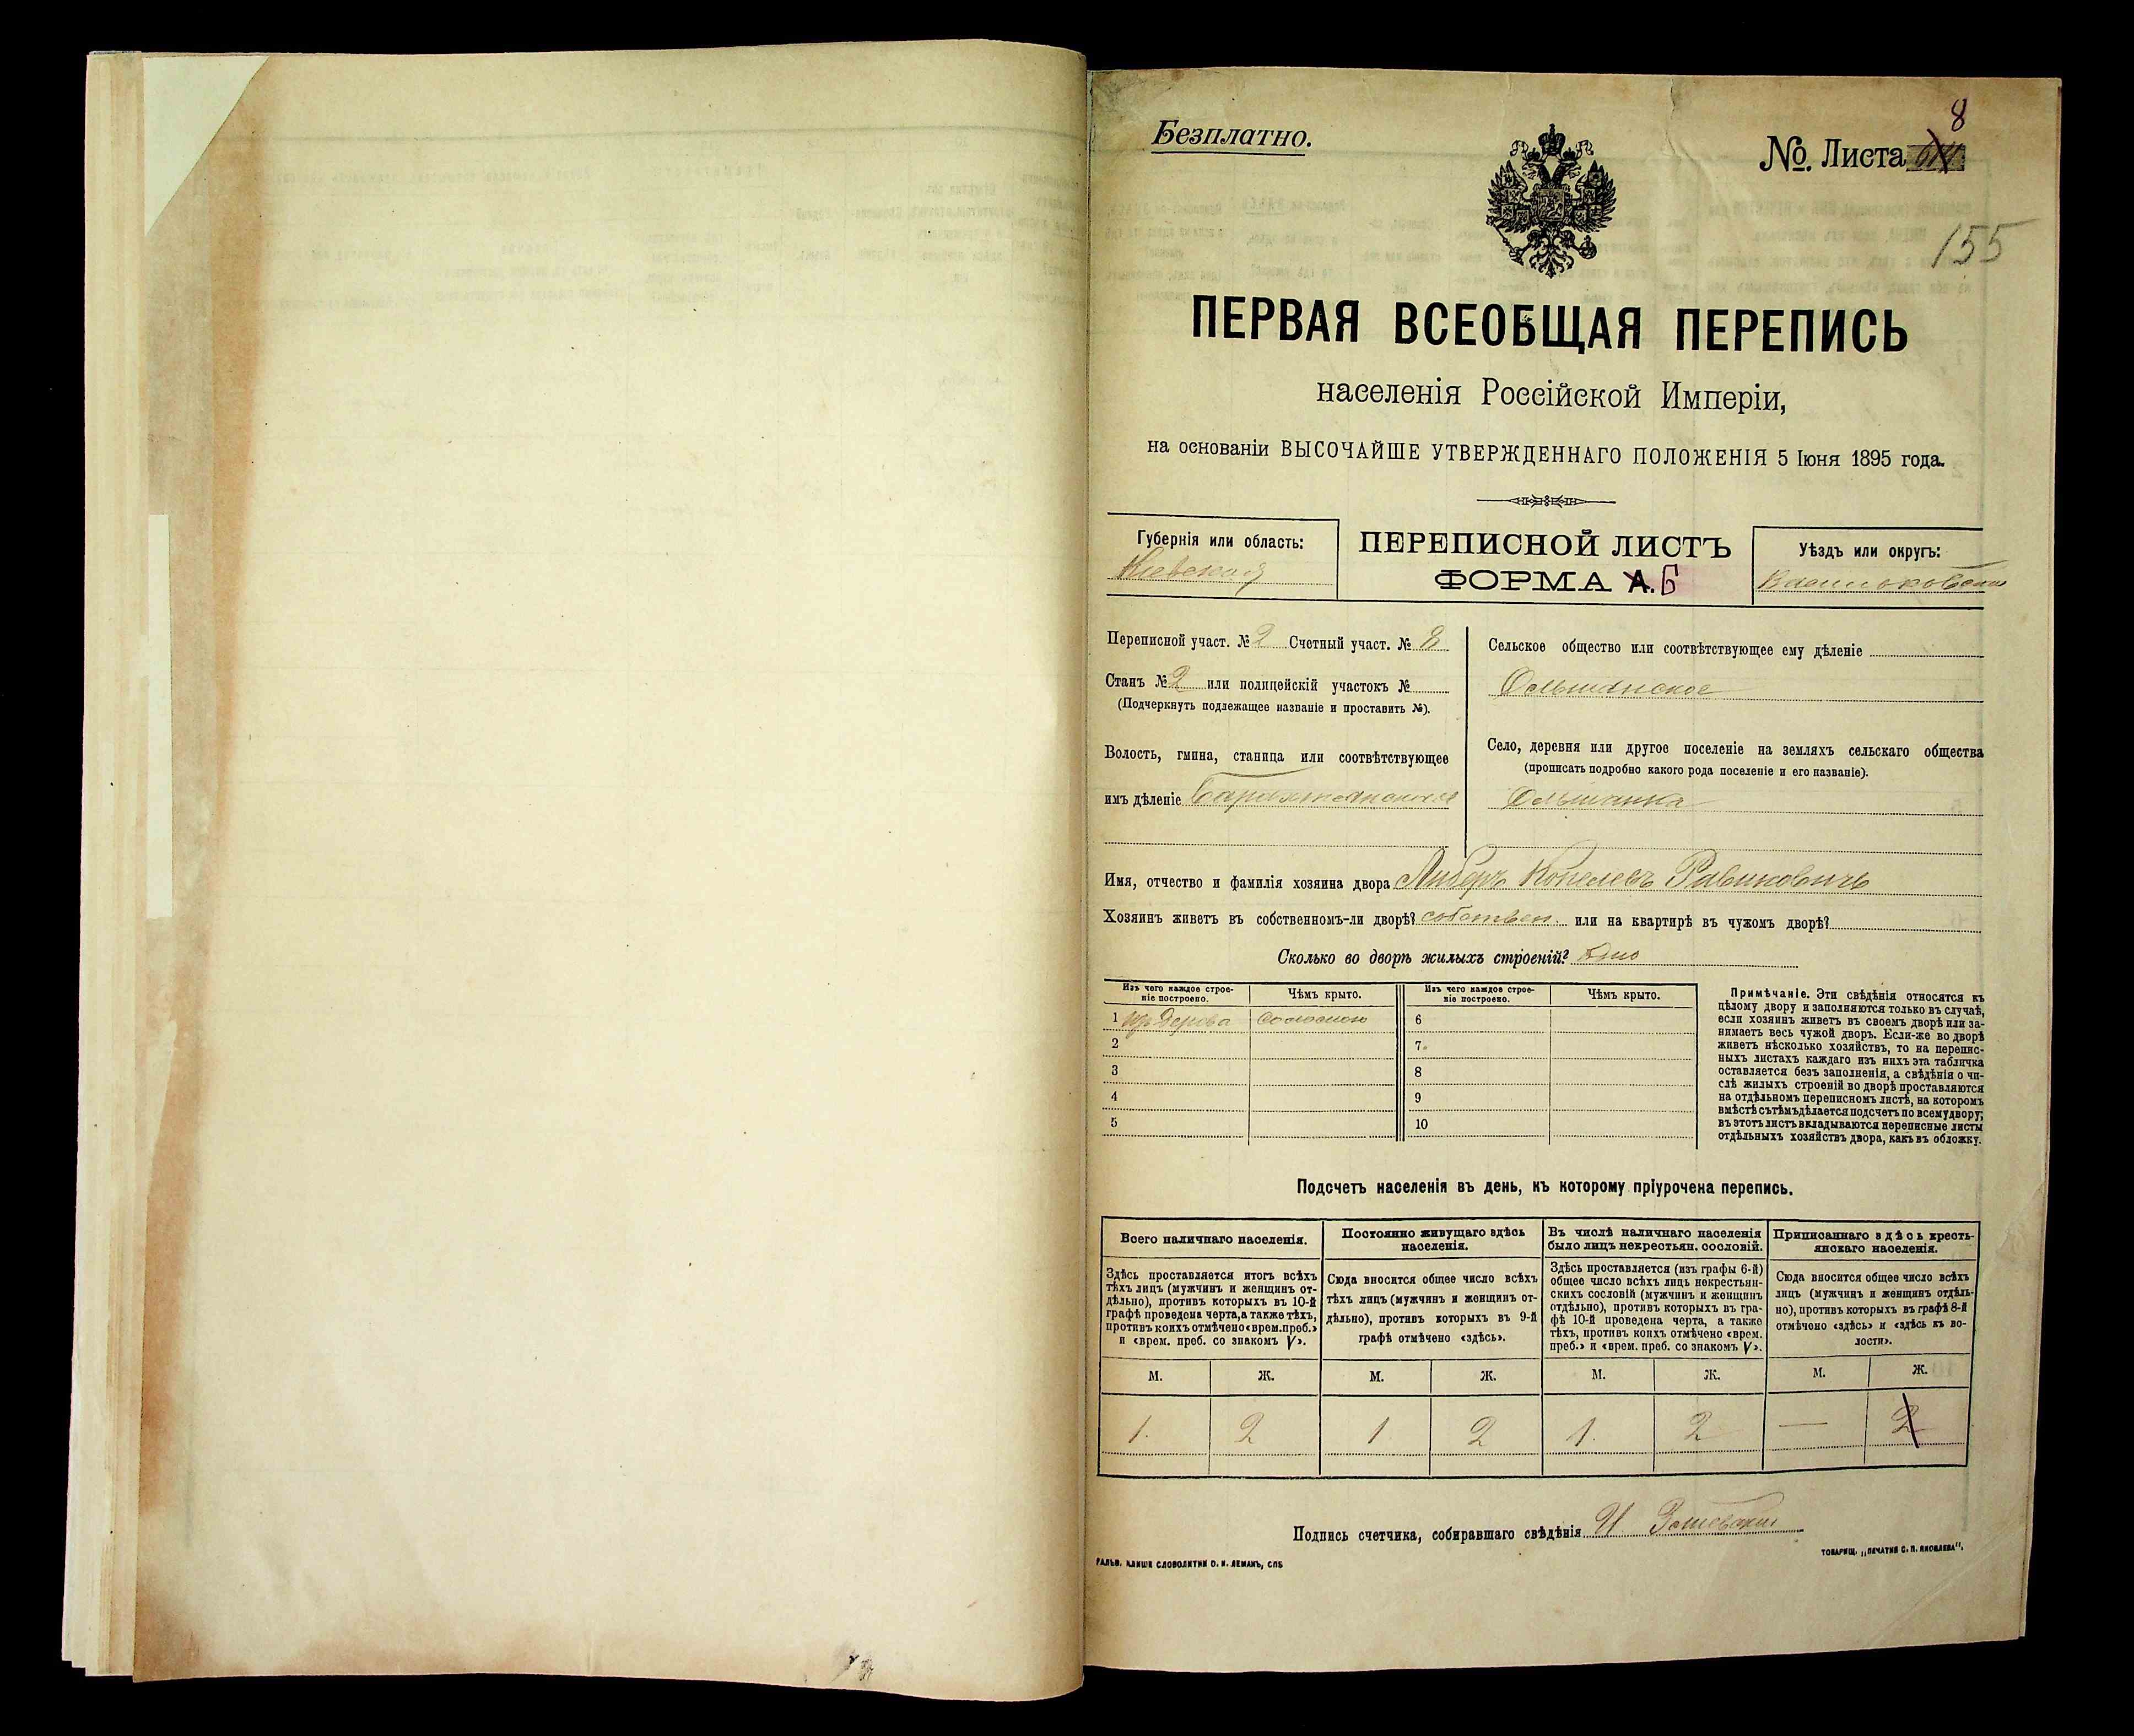 8
Безплатно.
№. Листа
155
ПЕРВАЯ ВСЕОБЩАЯ ПЕРЕПИСЬ
населенія Россійской Имперіи,
на основаніи ВЫСОЧАЙШЕ УТВЕРЖДЕННАГО ПОЛОЖЕНІЯ 5 Іюня 1895 года.
Губернія или область:
Кіевская
ПЕРЕПИСНОЙ ЛИСТЪ
ФОРМА А. Б
Уѣздъ или округъ:
Васильковскій
Переписной участ. № 2 Счетный участ. № 2
Станъ № 2 или полицейскій участокъ №
(Подчеркнуть подлежащее названіе и проставить №).
Волость, гмина, станица или соотвѣтствующее
имъ дѣленіе
Сельское общество или соотвѣтствующее ему дѣленіе
Ольшанское
Село, деревня или другое поселеніе на земляхъ сельскаго общества
(прописать подробно какого рода поселеніе и его названіе).
Ольшанка
Имя, отчество и фамилія хозяина двора Либеръ Копелевъ Равиковичъ
Хозяинъ живетъ въ собственномъ-ли дворѣ? собствен. или на квартирѣ въ чужомъ дворѣ?
Сколько во дворѣ жилыхъ строеній? Одно
Изъ чего каждое строе-
ніе построено.
Чѣмъ крыто.
Изъ чего каждое строе-
ніе построено.
Чѣмъ крыто.
1 изъ Дерева Соломою 6
2 7
3 8
4 9
5 10
Примѣчаніе. Эти свѣдѣнія относятся къ
цѣлому двору и заполняются только въ случаѣ,
если хозяинъ живетъ въ своемъ дворѣ или за-
нимаетъ весь чужой дворъ. Если-же во дворѣ
живетъ нѣсколько хозяйствъ, то на перепис-
ныхъ листахъ каждаго изъ нихъ эта табличка
оставляется безъ заполненія, а свѣдѣнія о чи-
слѣ жилыхъ строеній во дворѣ проставляются
на отдѣльномъ переписномъ листѣ, на которомъ
вмѣстѣ съ тѣмъ дѣлается подсчетъ по всему двору;
въ этотъ листъ вкладываются переписные листы
отдѣльныхъ хозяйствъ двора, какъ въ обложку.
Подсчетъ населенія въ день, къ которому пріурочена перепись.
Всего наличнаго населенія.
Здѣсь проставляется итогъ всѣхъ
тѣхъ лицъ (мужчинъ и женщинъ от-
дѣльно), противъ которыхъ въ 10-й
графѣ проведена черта, а также тѣхъ,
противъ коихъ отмѣчено «врем. преб.»
и «врем. преб. со знакомъ V».
Постоянно живущаго здѣсь
населенія.
Сюда вносится общее число всѣхъ
тѣхъ лицъ (мужчинъ и женщинъ от-
дѣльно), противъ которыхъ въ 9-й
графѣ отмѣчено «здѣсь».
Въ числѣ наличнаго населенія
было лицъ некрестьян. сословій.
Здѣсь проставляется (изъ графы 6-й)
общее число всѣхъ лицъ некрестьян-
скихъ сословій (мужчинъ и женщинъ
отдѣльно), противъ которыхъ въ гра-
фѣ 10-й проведена черта, а также
тѣхъ, противъ коихъ отмѣчено «врем.
преб.» и «врем. преб. со знакомъ V».
Приписаннаго здѣсь кресть-
янскаго населенія.
Сюда вносится общее число всѣхъ
лицъ (мужчинъ и женщинъ отдѣль-
но), противъ которыхъ въ графѣ 8-й
отмѣчено «здѣсь» и «здѣсь къ во-
лости».
М. Ж. М. Ж. М. Ж. М. Ж.
1. 2 1 2 1. 2 — 2
Подпись счетчика, собиравшаго свѣдѣнія И.
ГАЛЬВ. КЛИШЕ СЛОВОЛИТНИ О. И. ЛЕМАНЪ, СПБ
ТОВАРИЩ. „ПЕЧАТНЯ С. П. ЯКОВЛЕВА“.